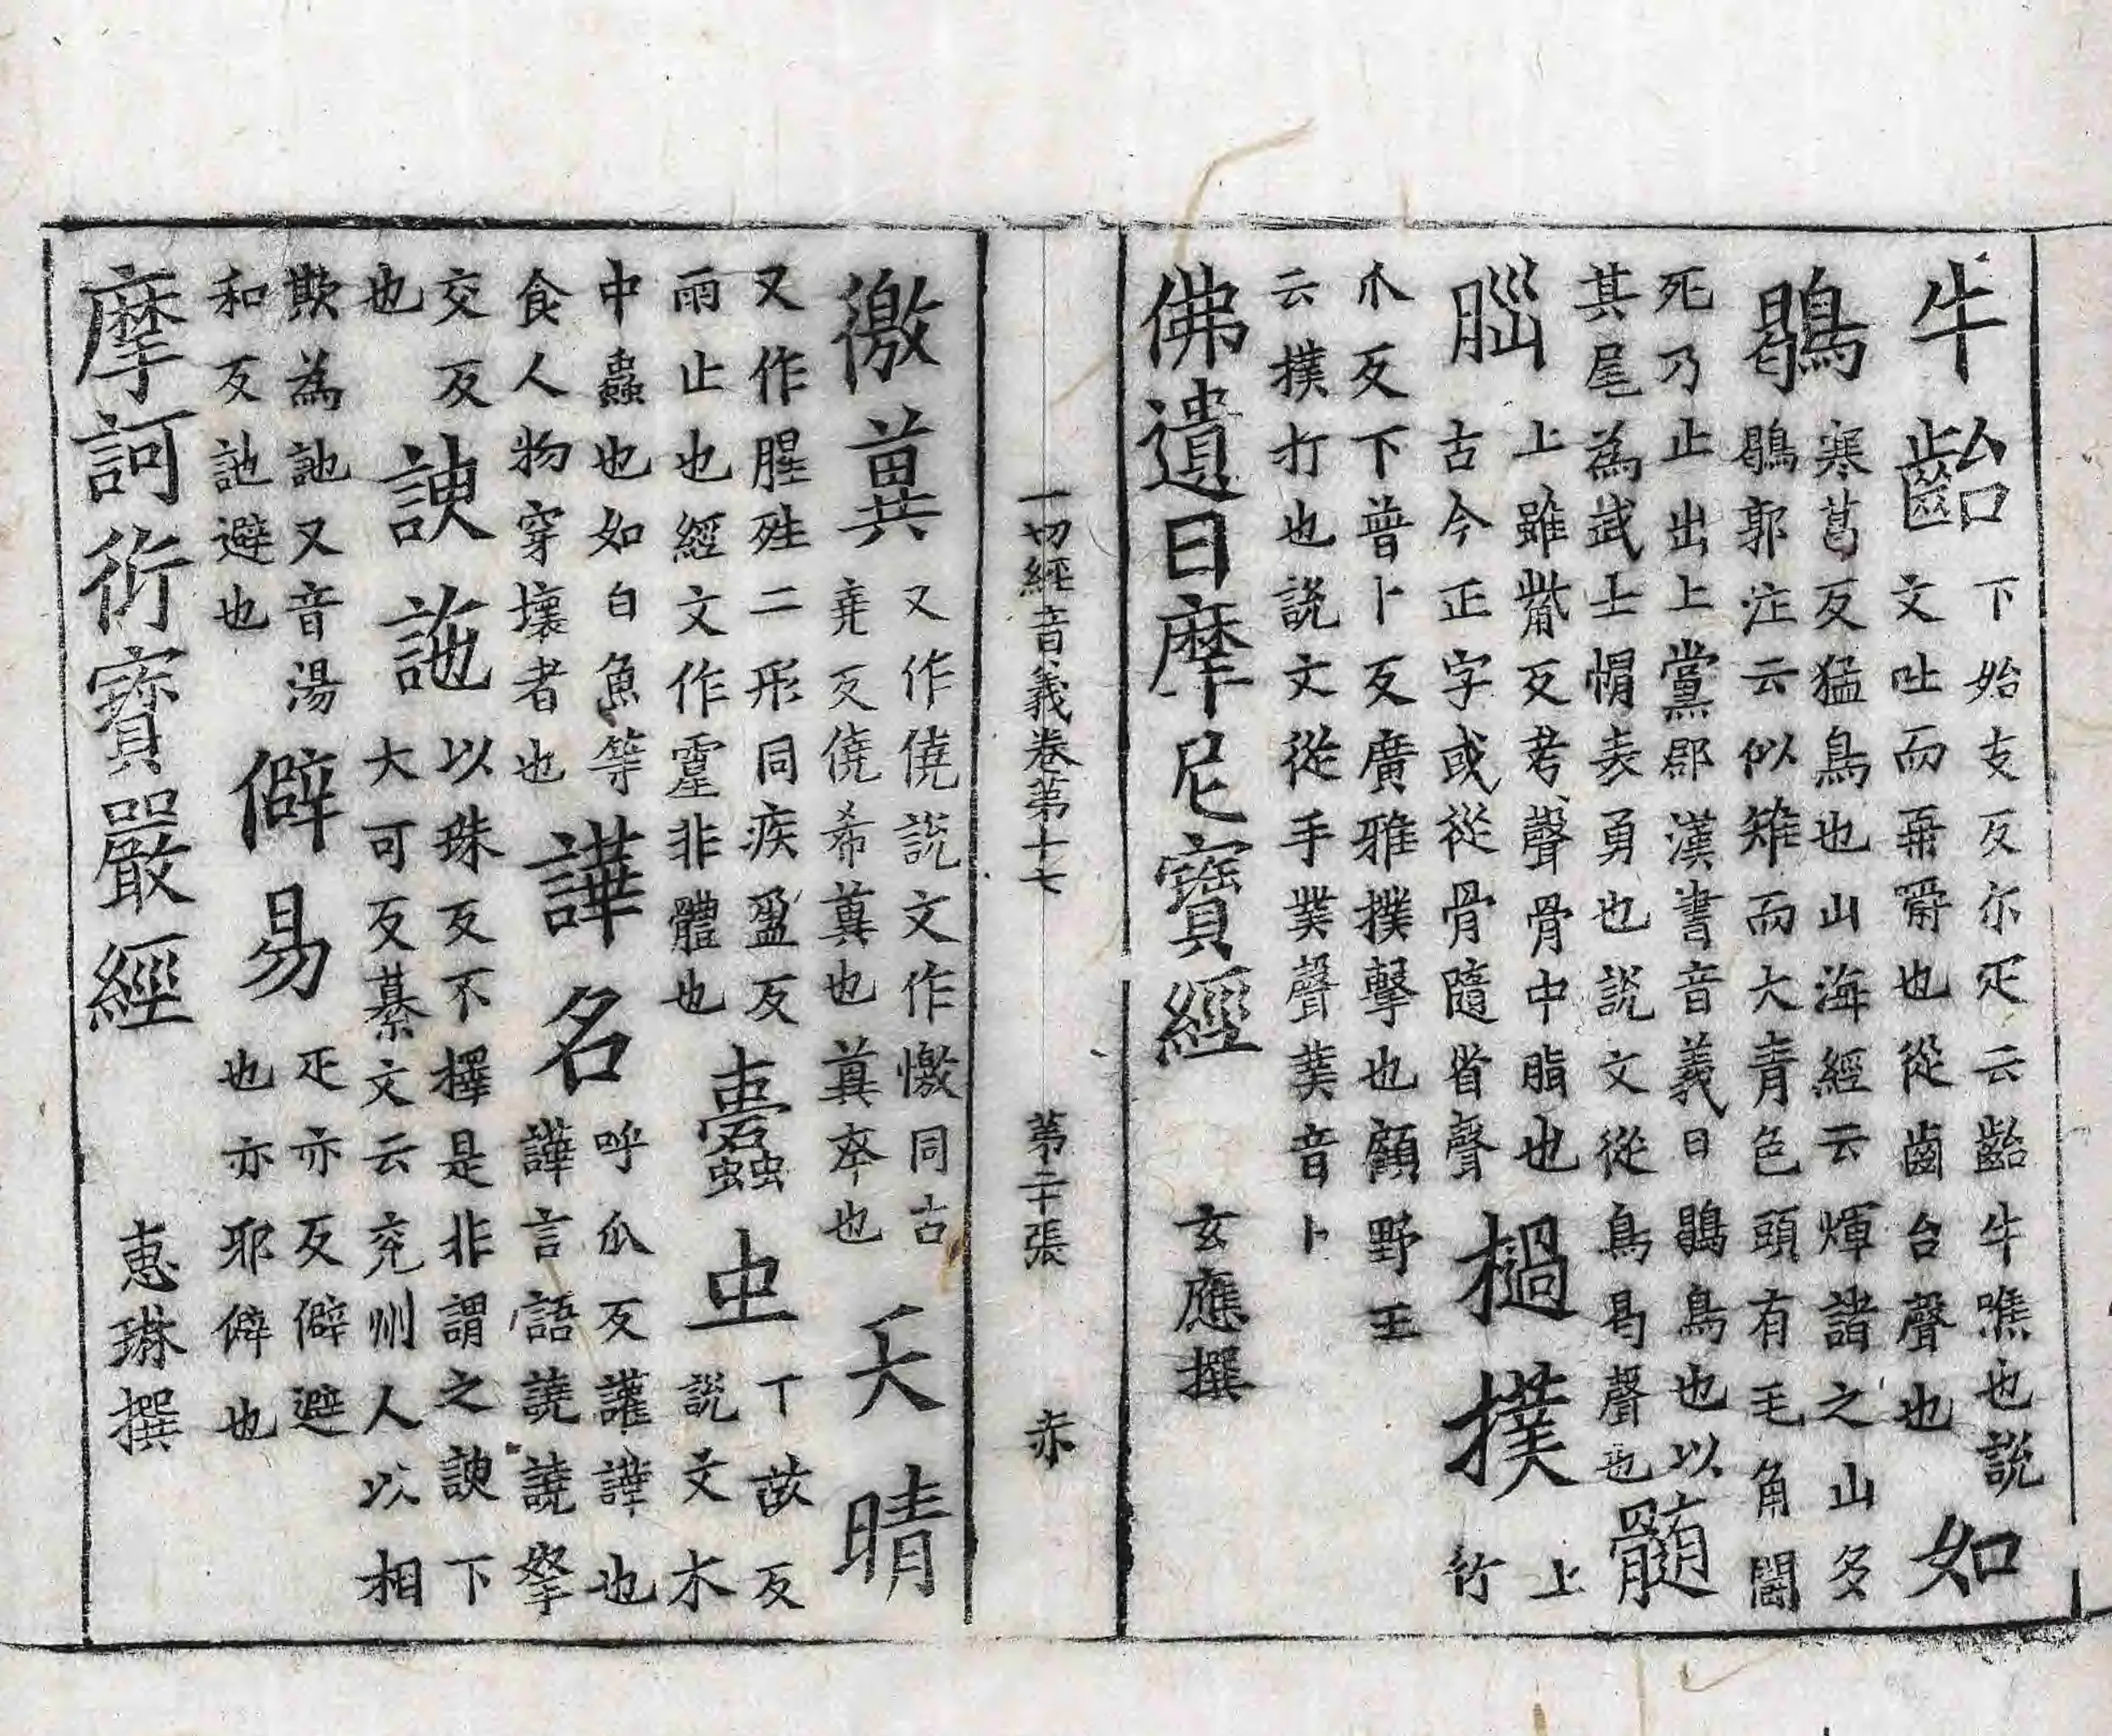 牛齝下始支反尓疋云齝牛噍也說
文吐而再嚼也從齒台聲也如
鶡寒葛反猛鳥也山海經云煇諸之山多
鶡郭注云似雉而大青色頭有毛角鬪
死乃止出上黨郡漢書音義曰鶡鳥也以
其尾為武士帽表勇也說文從鳥曷聲也髓
腦上雖觜反考聲骨中脂也
古今正字或從骨隨省聲檛撲上
竹
爪反下普卜反廣雅撲擊也顧野王
云撲打也說文從手菐聲菐音卜
佛遺日摩尼寶經 玄應撰
一切經音義卷第十七 第二十張 赤
儌冀又作僥說文作憿同古
堯反僥希冀也冀幸也夭晴
又作腥殅二形同疾盈反
雨止也經文作霪非體也蠹虫丁故反
說文木
中蟲也如白魚等
食人物穿壞者也譁名呼瓜反讙譁也
譁言語譊譊拏
交反
也諛訑以珠反不擇是非謂之諛下
大可反纂文云兖州人以相
欺為訑又音湯
和反訑避也僻易疋亦反僻避
也亦耶僻也
摩訶衍寶嚴經 惠琳撰